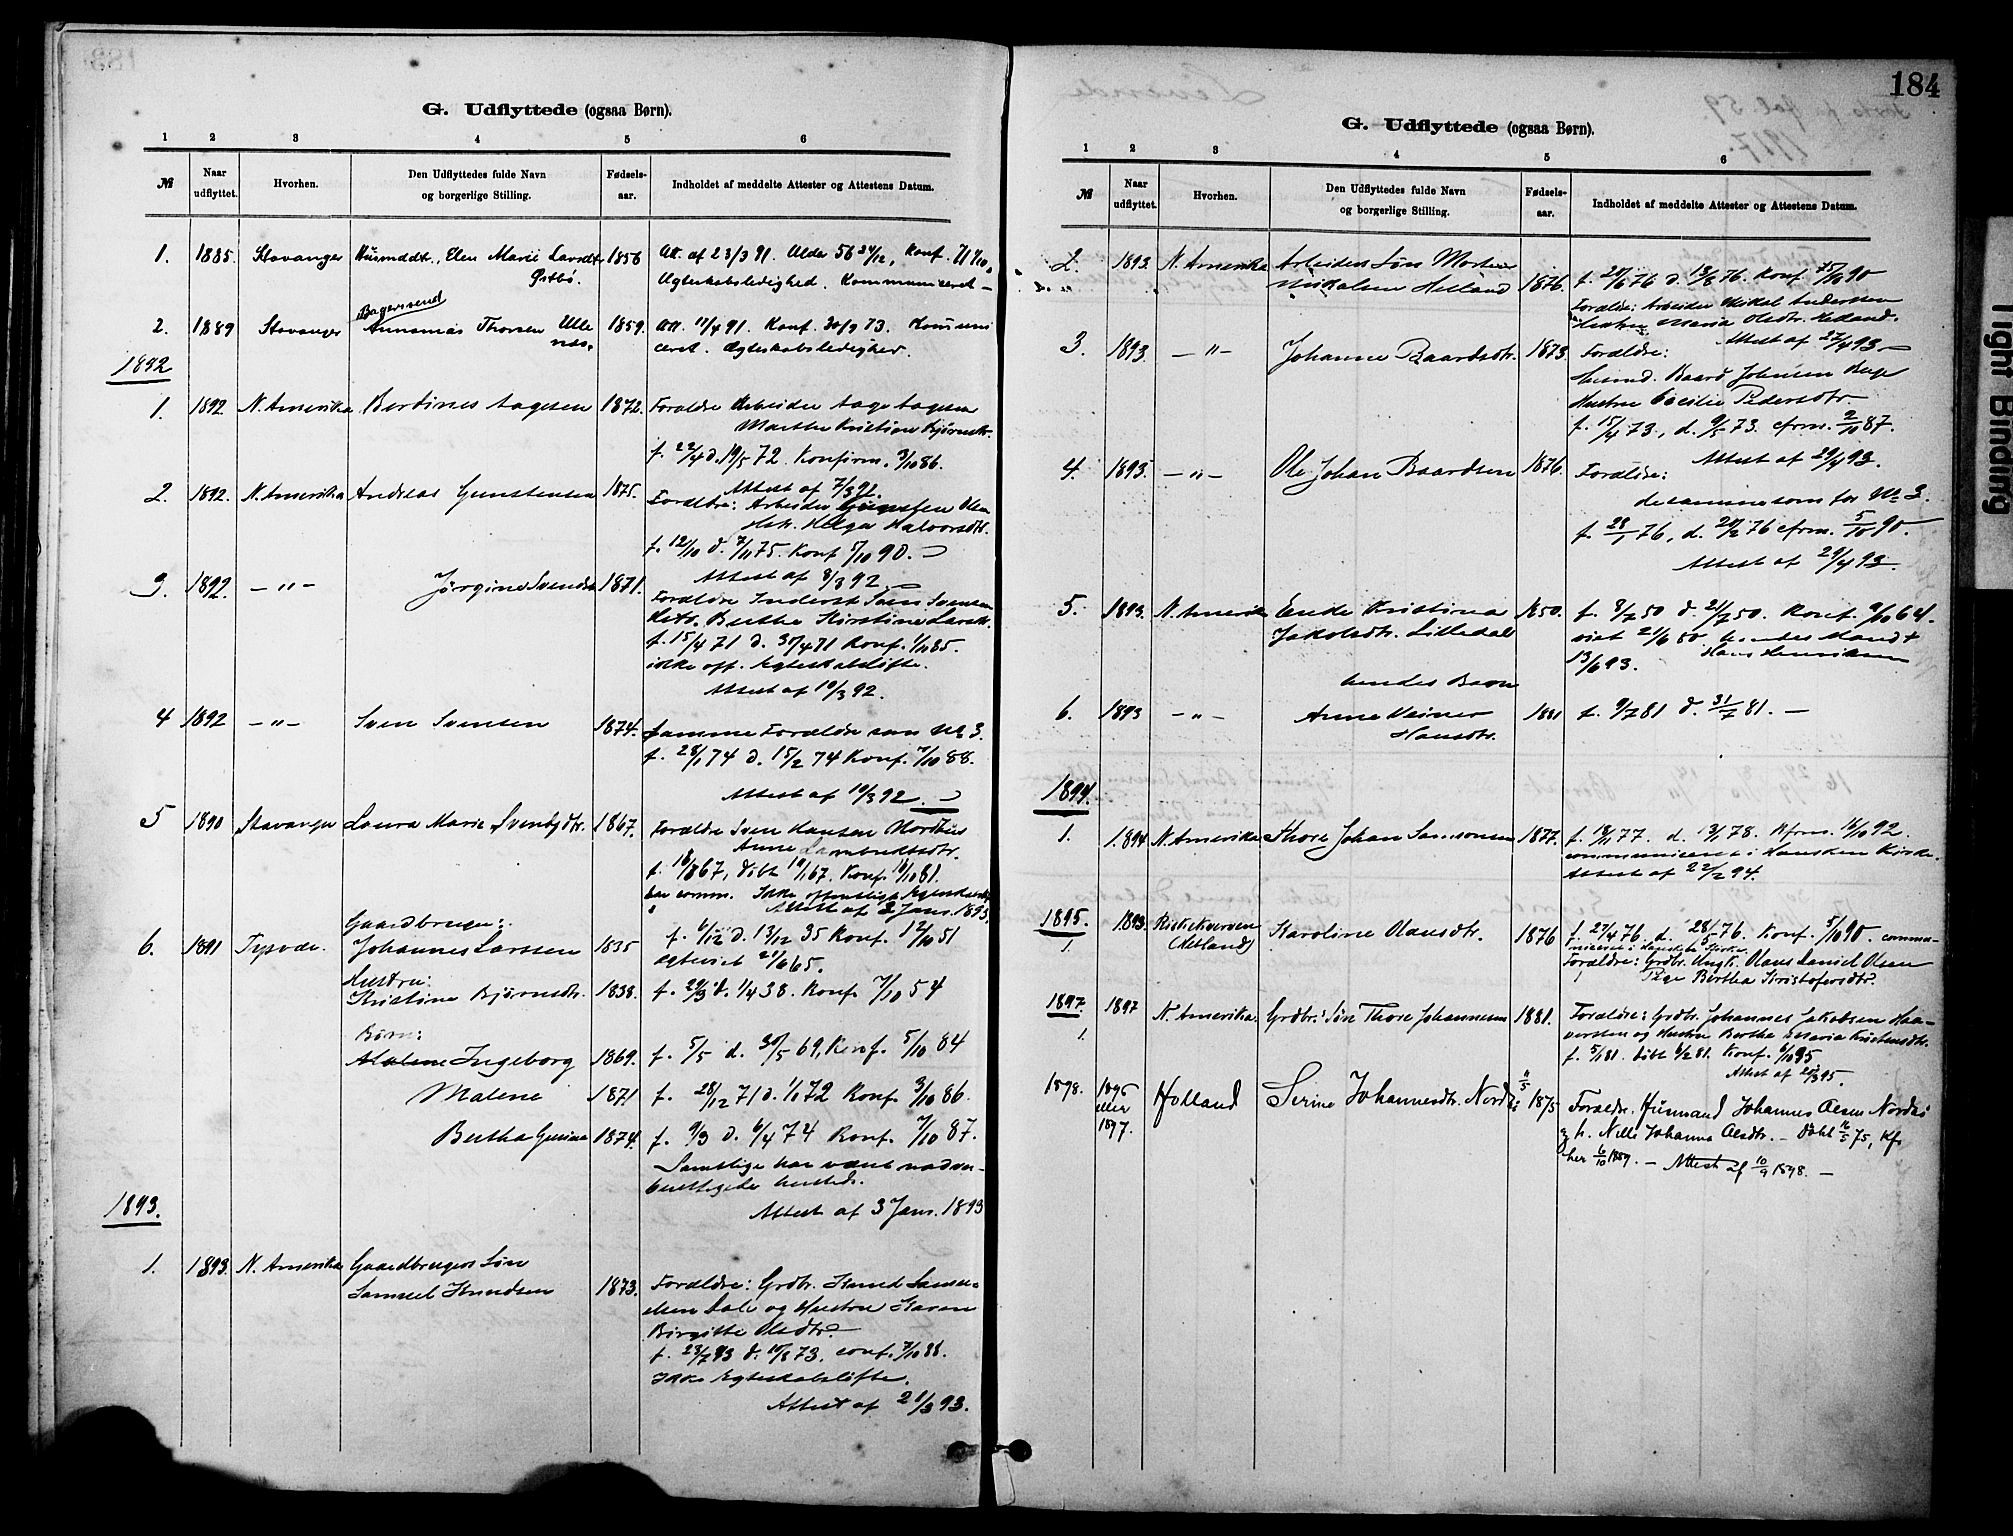 G. Udflyttede (ogsaa Børn).
1 2 3 4 5 6
№ Naar udflyttet. Hvorhen. Den Udflyttedes fulde Navn og borgerlige Stilling. Fødsels-aar. Indholdet af meddelte Attester og Attestens Datum.
1. 1885. Stavanger Elen Marie 1856 Att. af 23/3 91. Alder 56 24/12, Konf.
Østbø. Ægteskabsledighed. Kommuniceret —
Bagersvend
2. 1889 Stavanger Thorsen Ulle 1859. Att. 17/4 91. Konf. 30/9 73. Kommuni
nes. ceret. Ægteskabsledighed.
1892
1. 1892 N. Amerika Bertines Aagesen 1872. Forældre Arbeider Aage Aagesen
Marthe Kristine Bjørnsdtr.
f. 22/4 d. 19/5 72. Konfirm. 3/10 86.
Attest af 7/3 92.
2. 1892. N. Amerika Andreas Gunstensen 1875. Forældre: Arbeider Gunsten Olsen
Helga Halvorsdtr.
f. 12/10 d. 7/11 75. Konf 5/10 90. —
Attest af 8/3 92 —
3. 1892. — „ — Jørgine Svendsd 1871. Forældre Inderst Svend Svensen
Hstr. Berthe Kirstine Larsdtr.
f. 15/4 71 d. 30/4 71 Konf. 1/10 85.
ikke off. Ægteskabsløfte.
Attest af 19/3 92.
4 1892 — „ — Sven Svensen 1874. Samme Forældre som № 3.
f. 28/1 74 d. 15/2 74 Konf. 7/10 88.
Attest af 19/3 92. —
5 1890 Stavanger Laura Marie 1867. Forældre Sven Hansen Nordbø
Anne Lambrechtsdtr.
f. 16/8 67, døbt 67. Konf. 16/10 81.
har comm. Ikke offentligt Ægteskabsl
Attest af 2 Jan. 1893
Gaardbruger:
6. 1891 Tysvær. Johannes Larssen 1835 f. 6/12 d. 13/12 35 Konf. 12/10 51
Ægteviet 21/6 65.
Hustru:
Kristine Bjørnsdtr. 1838. f. 29/3 d. 1/4 38. Konf. 7/10 54
Børn:
Ingeborg 1869. f. 5/5 d. 30/5 69, Konf. 5/10 84
Malene 1871 f. 28/12 71 d. 1/1 72 Konf. 3/10 86.
Bertha Gurine 1874. f. 9/3 d. 6/4 74 Konf. 7/10 87.
Samtlige har været nadver-
berettigede herstedr.
Attest af 3 Jan. 1893
1893.
1. 1893. N. Amerika Gaardbrugers Søn
Samuel Knudsen 1873. Forældre: Grdbr. Knud Samu-
elsen Dale og Hustru Karen
Birgitte Olsdtr.
f. 23/7 73 d. 10/8 73. conf. 7/10 88.
Ikke Ægteskabsløfte.
Attest af 21/3 93.
184
fol. 59.
1917.
G. Udflyttede (ogsaa Børn).
1 2 3 4 5 6
№ Naar udflyttet. Hvorhen. Den Udflyttedes fulde Navn og borgerlige Stilling. Fødsels-aar. Indholdet af meddelte Attester og Attestens Datum.
2. 1893. N. Amerika Arbeiders Søn Morten
Mikalsen Helland 1876. f. 20/6 76 d. 13/8 76. Konf. 90
Forældre: Arbeider Mikal Anderssen
Hustru Maria Olsdtr. Helland.
Attest af 27/4 93 —
3. 1893. — „ — Johanne Baardsdtr. 1873. Forældre:
Husmd. Baard Johnsen
Hustru Cecilie Pedersdtr.
f. 15/4 73, d. 9/5 73. cfrm. 2/10 87.
Attest af 29/4 93.
4. 1893. — „ — Ole Johan Baardsen 1876. Forældre:
de samme som for № 3.
f. 28/1 76, d. 20/2 76 cfrm. 5/10 90.
Attest af 29/4 93.
5. 1893. N. Amerika Kristina 1850. f. 8/7 50 d. 21/7 50. Konf. 9/10 64.
Jakobsdtr. Lilledal viet 21/6 80 hendes Mand +
13/6 93. Hans Henriksen
hendes Barn
6. 1893 — „ — Anne 1881 f. 9/7 81 d. 31/7 81. —
Hansdtr.
1894.
1. 1894 N. Amerika Thore Johan Samsonsen 1877. f. 18/11 77. d. 13/1 78. Kfrm. 16/10 92.
communiceret i Hausken Kirke.
Attest af 22/2 94.
1895. 1893. Riskekversen Karoline Olausdtr. 1876 f. 27/4 76 d. 28/5 76. Konf. 5/10 90. commu-
1. (Hetland) niceret i Hausken Kirke
Forældre: Grdbr. Ungk. Olaus Daniel Olsen
Pige Bertha Kristofersdtr.
1897. 1897 N. Amerika. Grdbr.s Søn Thore Johannesen 1881. Forældre: Grdbr. Johannes Jakobsen Haa-
1. versten og Hustru Bertha Maria Kristensdtr.
f. 5/1 81. døbt 6/2 81. Konf. 6/10 95
Attest af 95.
1898. 1896 Holland Serine Johannesdtr. Nordbø 11/5 1875 Forældr. Husmand Johannes Olsen Nordbø
eller og h. Nille Johanne Olsdtr. — Døbt 16/5 75, Kf.
1897. her 6/10 1889. — Attest af 10/9 1898. —
Tight Binding